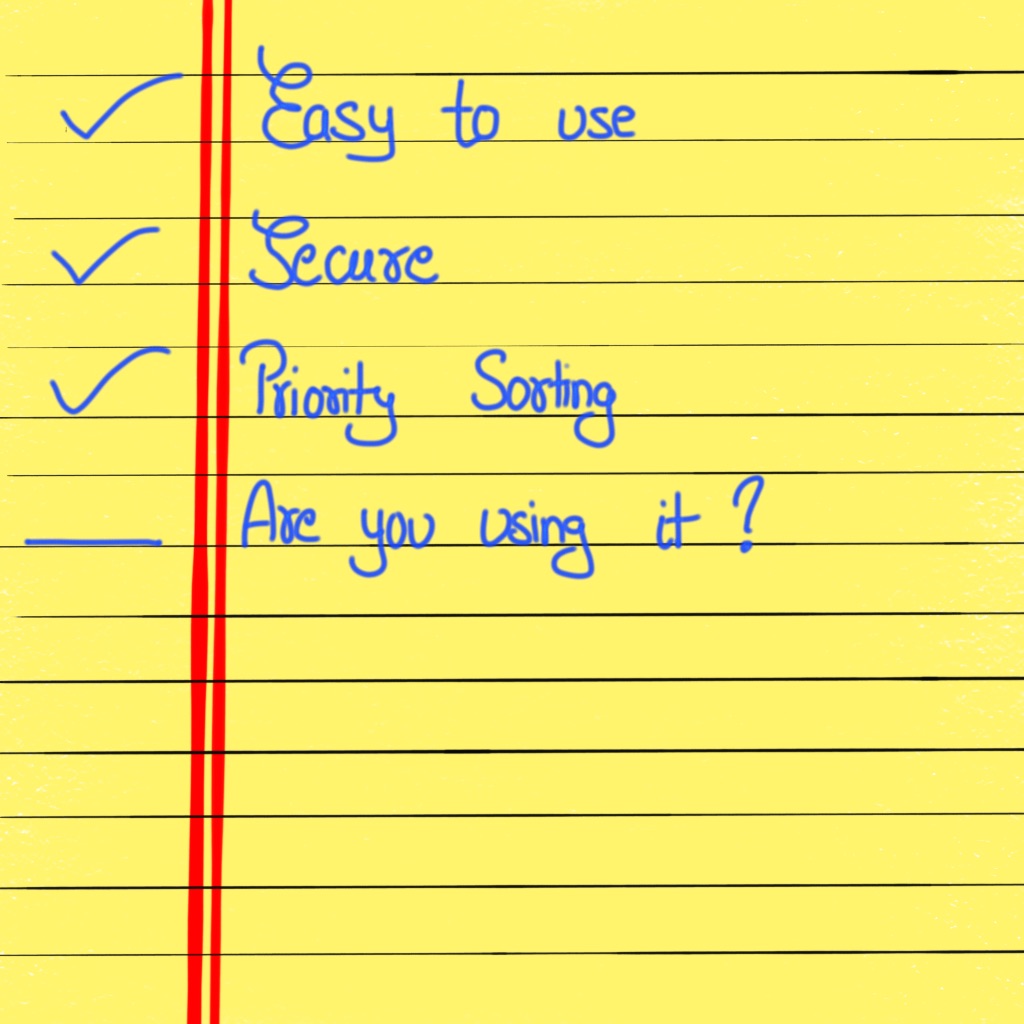 Easy to use
Secure
Priority Sorting
Are you using it?